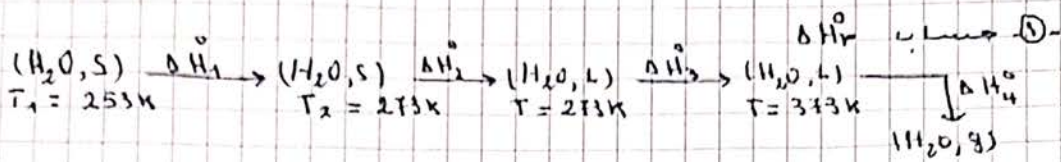 ① - حساب ΔH°r
(H₂O, S) —ΔH°₁→ (H₂O, S) —ΔH°₂→ (H₂O, L) —ΔH°₃→ (H₂O, L) —ΔH°₄→
T₁ = 253K T₂ = 273K T = 273K T = 373K
(H₂O, g)